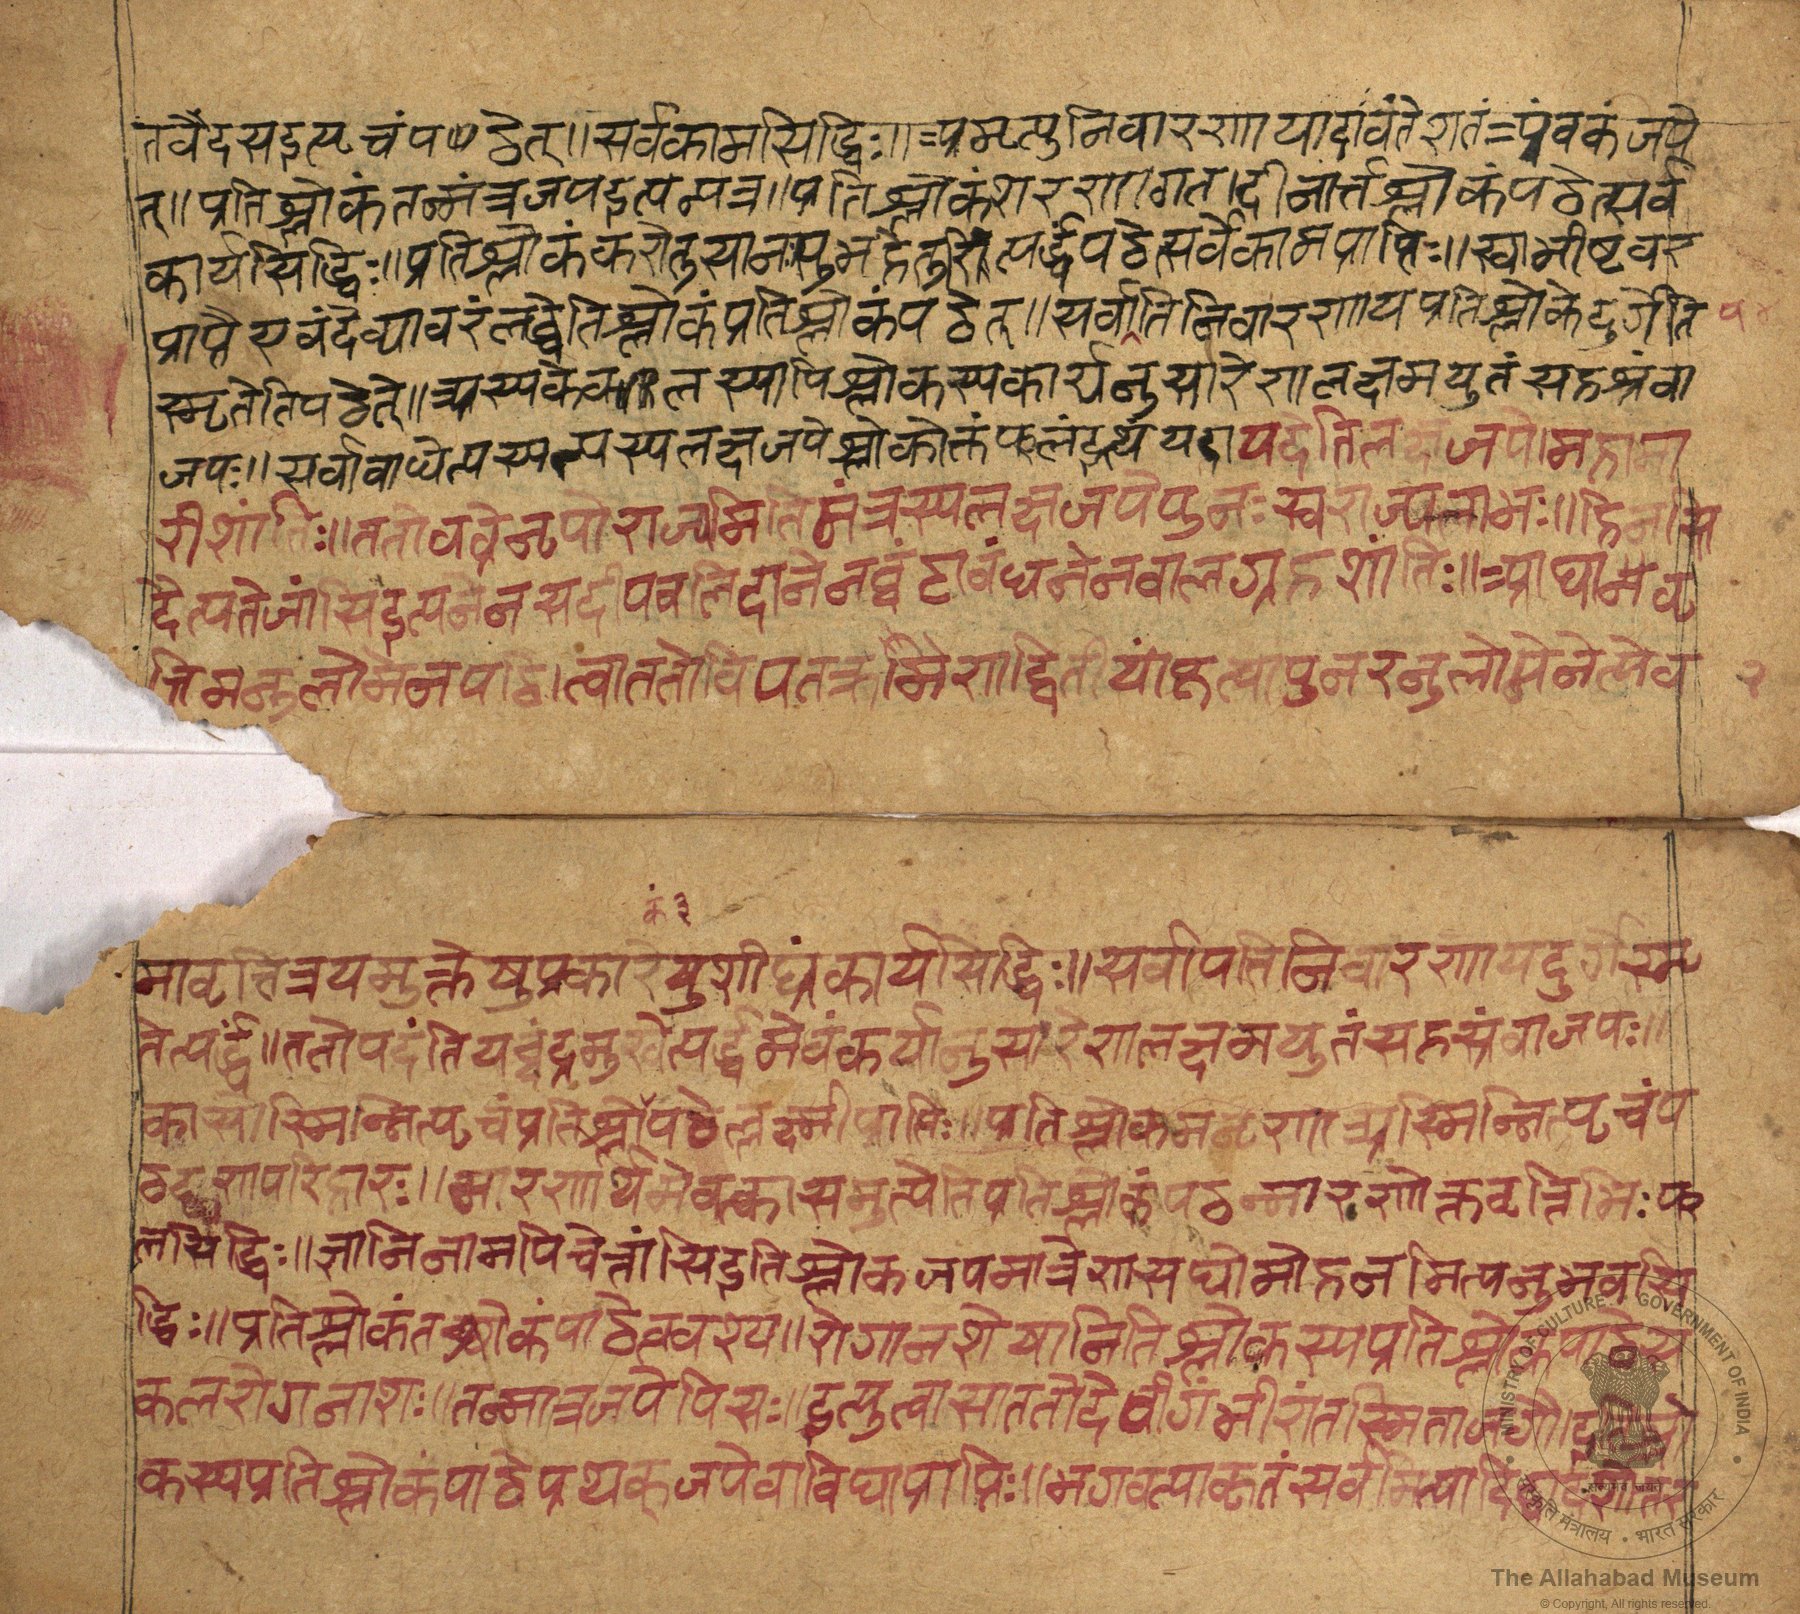 तवैदसइत्यृचंप ठेत्॥सर्वकामसिद्धिः॥=प्रमृत्युनिवारणायादावंतेशतं=प्रंवकंजपे
त्॥प्रतिश्लोकंतन्मंत्रजपइत्यन्यत्र॥प्रतिश्लोकंशरणागत।दीनार्त्तश्लोकंपठेत्सर्व
कार्यसिद्धिः॥प्रतिश्लोकंकरोतुसानःशुभहेतुरित्यर्द्धंपठेत्सर्वकामप्राप्तिः॥स्वाभीष्टवर
प्राप्तैएवंदेव्यावरंलब्ध्वेतिश्लोकंप्रतिश्लोकंपठेत्॥सर्वार्तिनिवारणायप्रतिश्लोकेदुर्गेति
स्मृतेतिपठेत्॥अस्यकेवलस्यापिश्लोकस्यकार्यनुसारेणलक्षमयुतंसहश्रंवा
जपः॥सर्वावाधेत्यस्यलक्षजपेश्लोकोक्तंफलंइत्थंयदायदेतिलक्षजपे।महामा
रीशांतिः॥ततोवव्रेनृपोराज्यमितिमंत्रस्यलक्षजपेपुनःस्वराज्यलाभः॥हिनस्ति
दैत्यतेजांसिइत्यनेनसदीपवलिदानेनघंटावंधनेनवालग्रहशांतिः॥=प्राद्यामवृ
त्तिमनुलोमेनपठित्वाततोविपतक्रमेणद्वितीयांकृत्वापुनरनुलोमेनेत्येव
कं३
मावृत्तित्रयमुक्तेषुप्रकारेषुशीघ्रंकार्यसिद्धिः॥सर्वापतिनिवारणायदुर्गेस्मृ
तेत्यर्द्धं॥ततोयदंतियच्चंद्रमुखेत्यर्द्धमेवंकर्यानुसारेणलक्षमयुतंसहस्रंवाजपः॥
कांसोस्मिन्नित्यृचंप्रतिश्लोपठेल्लक्ष्मीप्राप्तिः॥प्रतिश्लोकमनृणाअस्मिन्नित्यृचंप
ठदृणपरिहारः॥मारणार्थमेवमुक्त्कासमुत्पेतिप्रतिश्लोकंपठन्मारणोक्तवृत्तिभिःफ
लसिद्धिः॥ज्ञानिनामपिचेतांसिइतिश्लोकजपमात्रेणसद्योमोहनमित्यनुभवसि
द्धिः॥प्रतिश्लोकंतश्लोकंपाठेत्ववश्य॥रोगानशेषानितिश्लोकस्यप्रतिश्लोकंपाठेस
कलरोगनाशः॥तन्मात्रजपेपिसः॥इत्युक्त्वासाततोदेवीगंभीरांतस्मिताजगौ।इतिश्लो
कस्यप्रतिश्लोकंपाठेप्रथक्जपेवाविद्याप्राप्तिः॥भगवत्याकृतंसर्वमित्यादि
MINISTRY OF CULTURE • GOVERNMENT OF INDIA
संस्कृति मंत्रालय • भारत सरकार
The Allahabad Museum
© Copyright, All rights reserved.